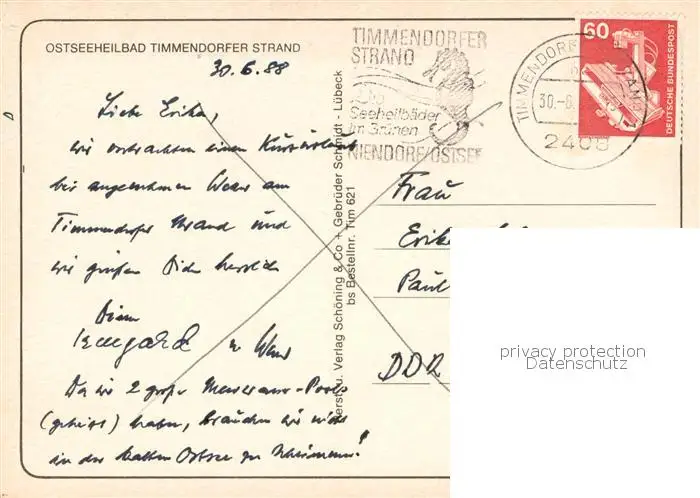 OSTSEEHEILBAD TIMMENDORFER STRAND
30.6.88
Liebe Erika,
wir verbrachten einen Kurzurlaub
bei angenehmem Wetter am
Timmendorfer Strand und
wir grüßen Dich herzlich
Deine
Irmgard u.
Da wir 2 große Meerwasser-Pools
(geheizt) haben, brauchen wir nicht
in der kalten Ostsee zu schwimmen!
Verlag Schöning & Co + Gebrüder Schmidt - Lübeck
bs Bestellnr. Tim 621
TIMMENDORFER
STRAND
Seeheilbäder
im Grünen
NIENDORF/OSTSEE
TIMMENDORFER STRAND
30.-6.
2408
60
DEUTSCHE BUNDESPOST
Frau
Erika
Paul
DDR
privacy protection
Datenschutz